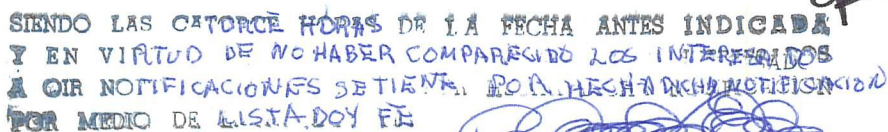 SIENDO LAS CATORCE HORAS DE LA FECHA ANTES INDICADA
Y EN VIRTUD DE NO HABER COMPARECIDO LOS INTERESADOS
A OIR NOTIFICACIONES SE TIENE POR HECHA DICHA NOTIFICACION
POR MEDIO DE LISTA DOY FE